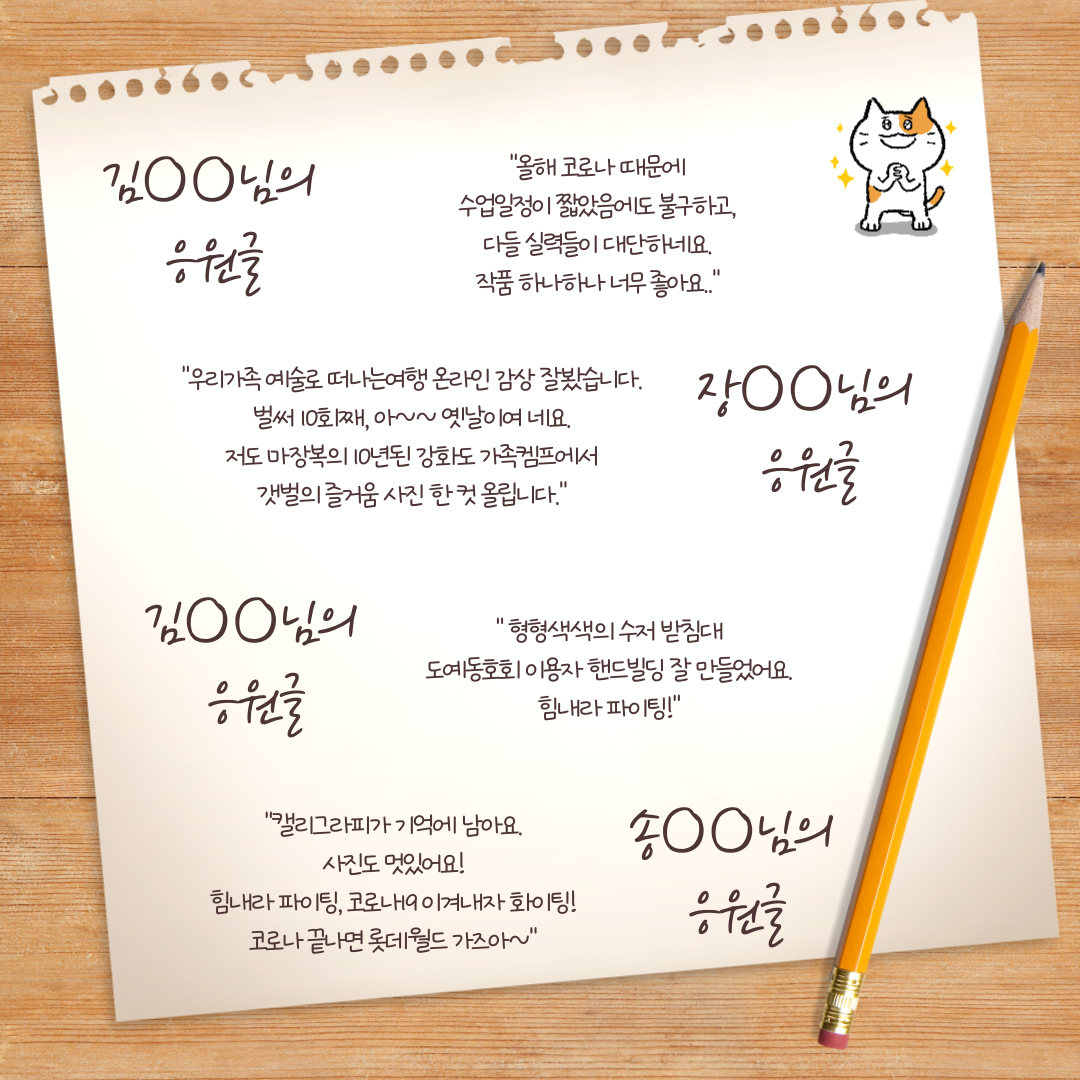 김○○님의
응원글
"올해 코로나 때문에
수업일정이 짧았음에도 불구하고,
다들 실력들이 대단하네요.
작품 하나하나 너무 좋아요.."
"우리가족 예술로 떠나는여행 온라인 감상 잘봤습니다.
벌써 10회째, 아~~~ 옛날이여 네요.
저도 마장복의 10년된 강화도 가족켐프에서
갯벌의 즐거움 사진 한 컷 올립니다."
장○○님의
응원글
김○○님의
응원글
" 형형색색의 수저 받침대
도예동호회 이용자 핸드빌딩 잘 만들었어요.
힘내라 파이팅!"
"캘리그라피가 기억에 남아요.
사진도 멋있어요!
힘내라 파이팅, 코로나19 이겨내자 화이팅!
코로나 끝나면 롯데월드 가즈아~"
송○○님의
응원글